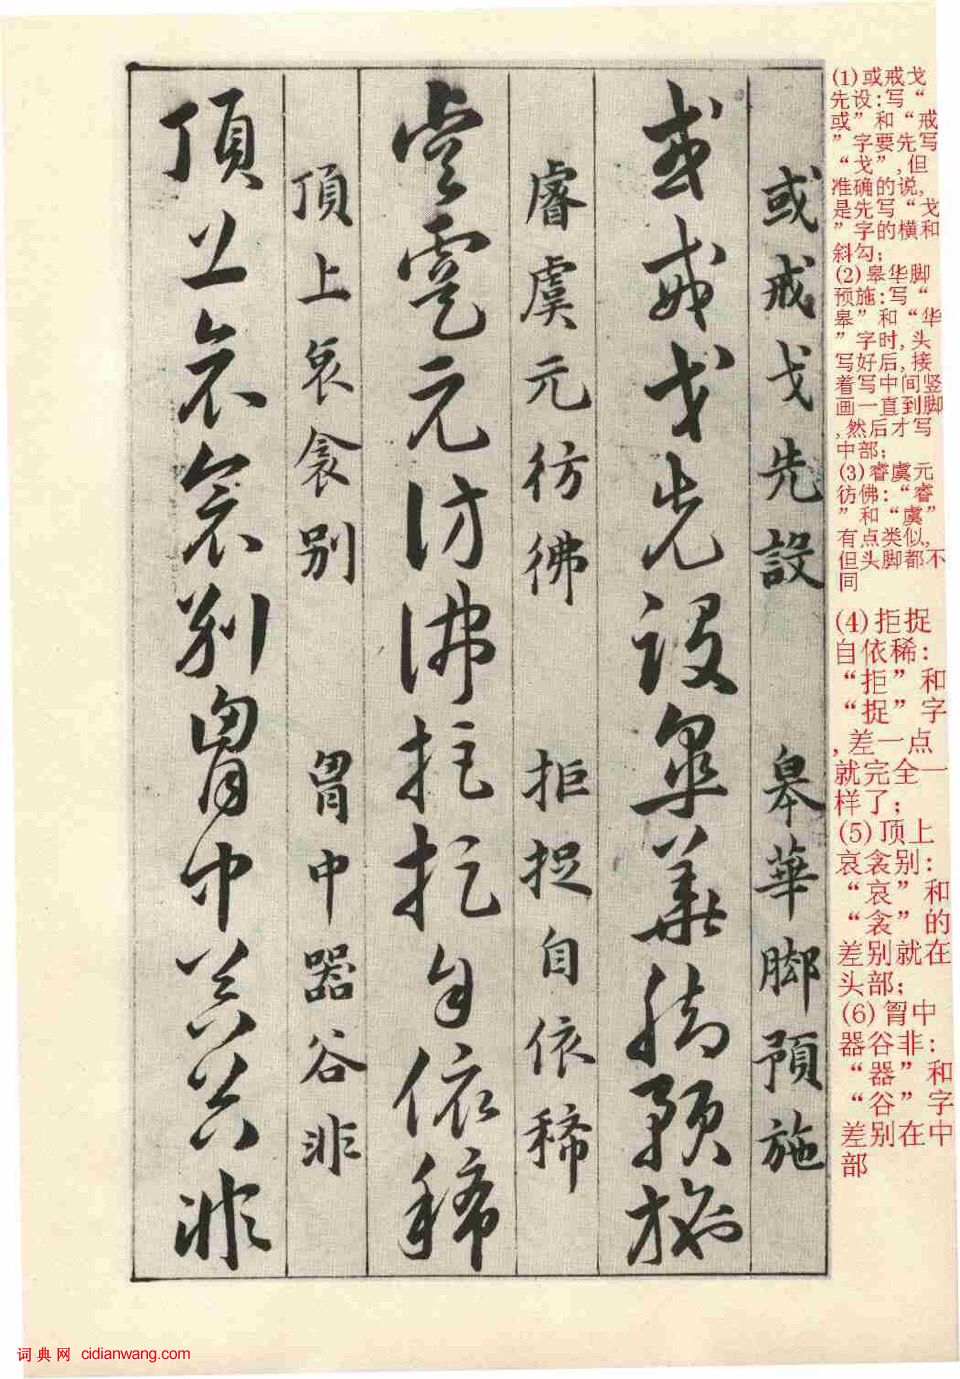 或戒戈先設 皋華脚預施
或戒戈先設皋華脚預施
睿虞元彷彿 拒捉自依稀
睿虞元彷彿拒捉自依稀
頂上哀衾别 胃中器谷非
頂上哀衾别胃中器谷非
(1)或戒戈
先设:写“
或”和“戒
”字要先写
“戈”,但
准确的说,
是先写“戈
”字的横和
斜勾;
(2)皋华脚
预施:写“
皋”和“华
”字时,头
写好后,接
着写中间竖
画一直到脚
,然后才写
中部;
(3)睿虞元
彷佛:“睿
”和“虞”
有点类似,
但头脚都不
同
(4)拒捉
自依稀:
“拒”和
“捉”字
,差一点
就完全一
样了;
(5)顶上
哀衾别:
“哀”和
“衾”的
差别就在
头部;
(6)胃中
器谷非:
“器”和
“谷”字
差别在中
部
词典网 cidianwang.com